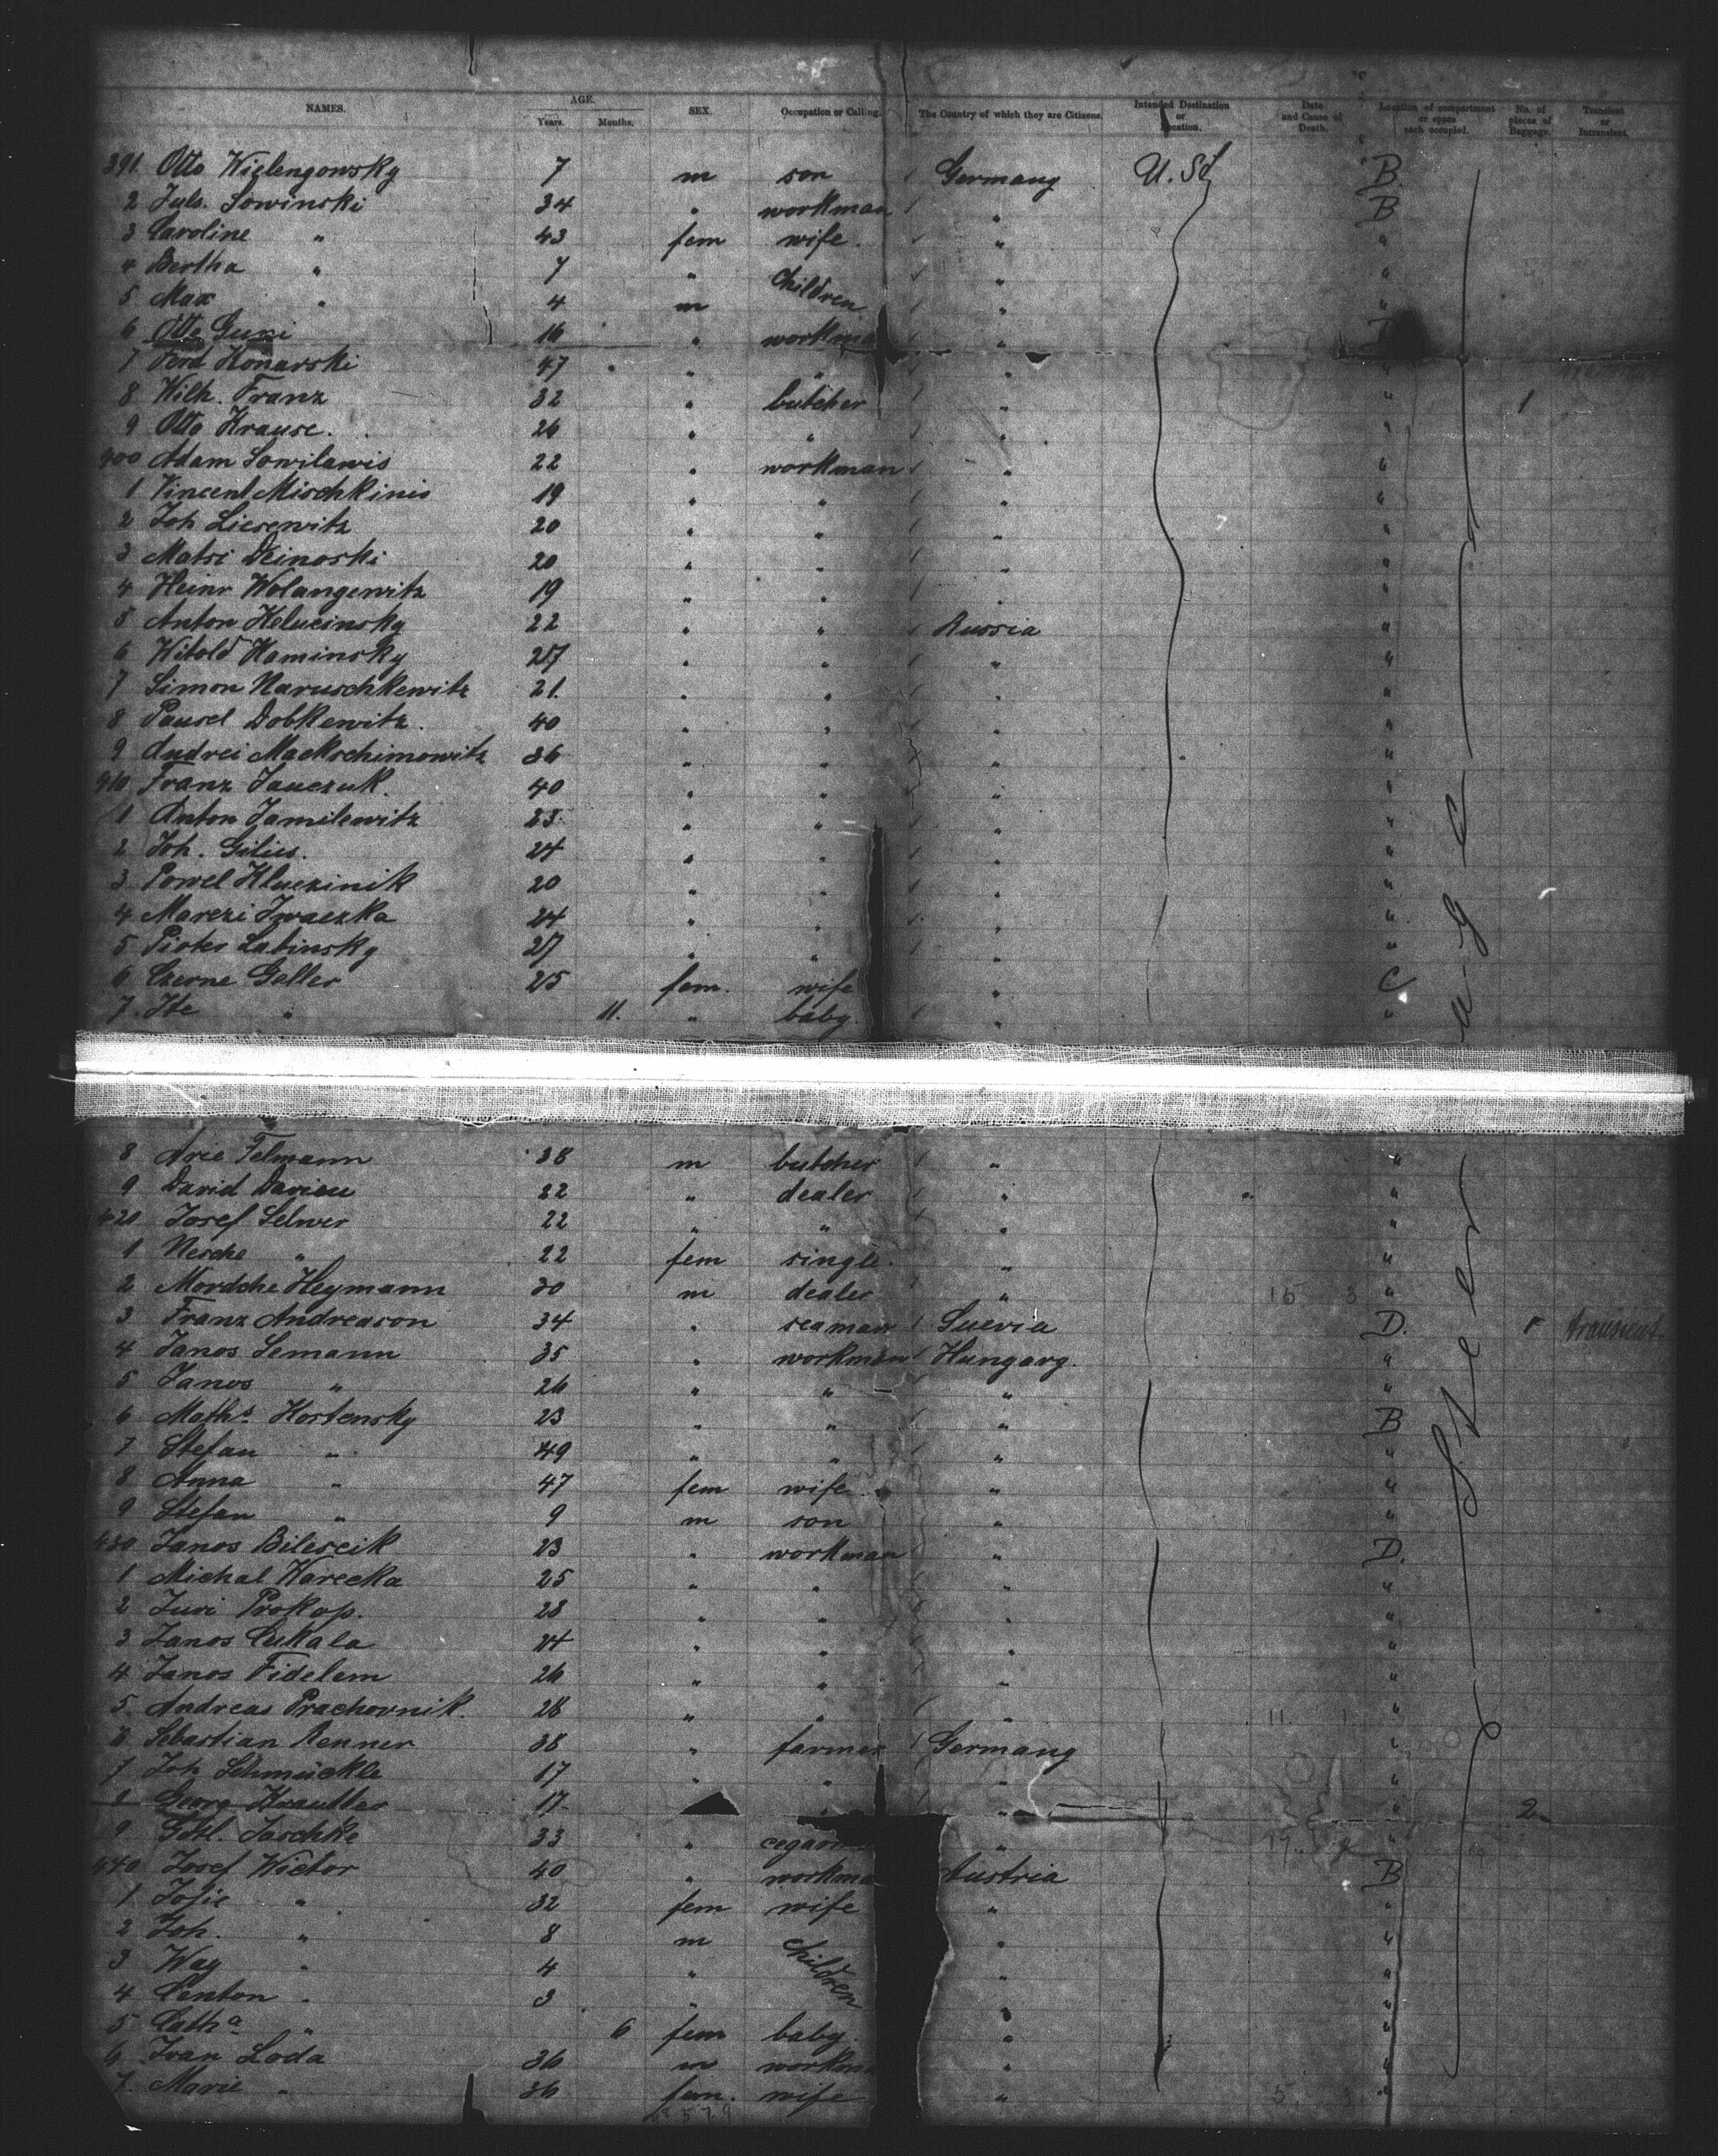 NAMES. AGE. Years. Months. SEX. Occupation or Calling. The Country of which they are Citizens. Intended Destination or Location. Date and Cause of Death. Location of compartment or space each occupied. No. of pieces of Baggage. Transient or Intransient.
391 Otto Wielengowsky 7 m son Germany U. St B.
2 Juls. Sowinski 34 " workman " B
3 Caroline " 43 fem wife. " "
4 Bertha " 7 " Children " "
5 Max " 4 m " "
6 Otto 16 " workma "
7 Ferd Konarski 47 " " " "
8 Wilh. Franz 32 " butcher " " 1
9 Otto Krause. 26 " " " "
400 Adam Sowilawis 22 " workman " "
1 Vincent Mischkinis 19 " " " "
2 Joh Liesewitz 20 " " " "
3 Matsi Deinoski 20 " " " "
4 Heinr Wolangewitz 19 " " " "
5 Anton Kelucinsky 22 " " Russia "
6 Witold Kaminsky 27 " " " "
7 Simon Naruschkewitz 21. " " " "
8 Pausel Dobkewitz. 40 " " " "
9 Andrei Mackschimowitz 36 " " " "
410 Franz Jauczuk. 40 " " " "
1 Anton Jamilewitz 23 " " " "
2 Joh. Gilies. 24 " " " "
3 Powel Kluczinik 20 " " " "
4 Marczi Iwaczka 24 " " " "
5 Pioter Labinsky 27 " " " "
6 Czerne Geller 25 fem. wife " C
7. Ite " 11. " baby. " "
8 Arie Felmann 38 m butcher " "
9 David Davieu 22 " dealer " "
420 Josef Selwer 22 " " " "
1 Nesche " 22 fem single. " "
2 Mordche Heymann 30 m dealer " "
3 Franz Andreason 34 " seaman Suevia D. 1 transient
4 Janos Semann 35 " workman Hungarg. "
5 Janos " 26 " " " "
6 Maths Hortensky 23 " " " B
7 Stefan " 49 " " " "
8 Anna " 47 fem wife " "
9 Stefan " 9 m son " "
430 Janos Bilescik 23 " workman " D.
1 Michal Harecka 25 " " " "
2 Juri Prokop. 28 " " " "
3 Janos Cukala 24 " " " "
4 Janos Fidelem 26 " " " "
5. Andreas Prachovnik. 28 " " " "
6 Sebastian Renner 38 " farmer Germany "
7 Joh Schmückle 17 " " " "
8 Georg Krautter 17. " " " 2
9 Gottl. Jaschke 33 " cegarm "
440 Josef Wictor 40 " workma Austria B
1 Josie " 32 fem wife " "
2 Joh. " 8 m children " "
3 Way " 4 " " "
4 Centon " 3 " " "
5 Catha " 6 fem baby. " "
6 Ivan Loda 36 m workma " "
7. Marie " 36 fem. wife " "
Steerage